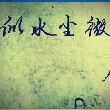 似水尘微